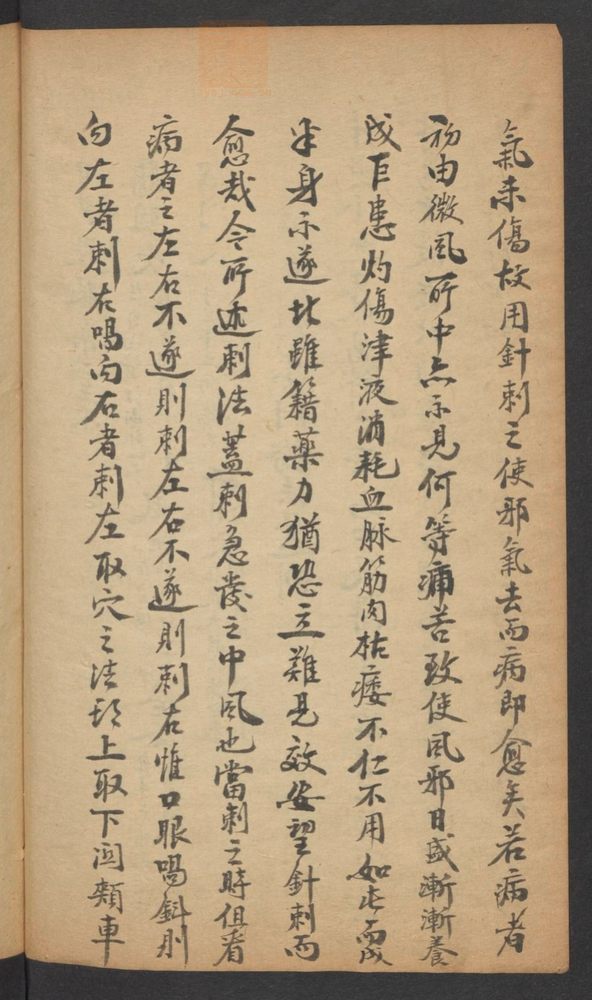 氣未傷故用針刺之使邪氣去而病即愈矣若病者
初由微風所中亦不見何等痛苦致使風邪日盛漸漸養
成巨患灼傷津液消耗血脉筋肉枯痿不仁不用如此而成
半身不遂此雖籍藥力猶恐立難見效安望針刺而
愈哉今所述刺法蓋刺急發之中風也當刺之時但看
病者之左右不遂則刺左右不遂則刺右惟口眼喎斜則
向左者刺右喎向右者刺左取穴之法頭上取下関頰車